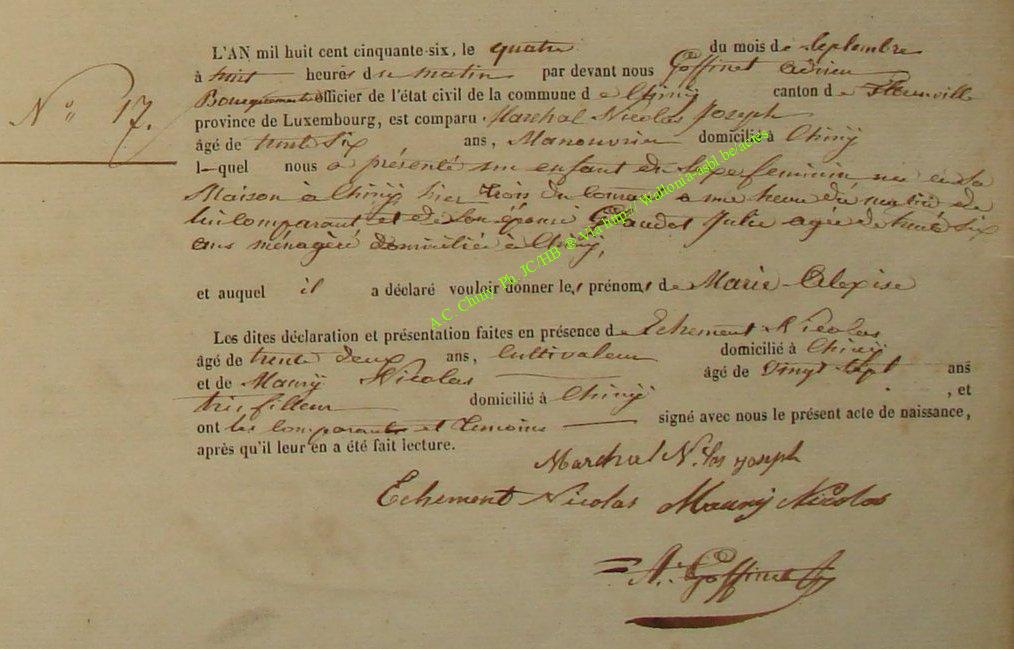 L'AN mil huit cent cinquante-six, le quatre du mois de Septembre
à huit heures du matin par devant nous Goffinet Adrien
N° 17.
Bourguemestre officier de l'état civil de la commune de Chiny canton de Florenville
province de Luxembourg, est comparu Marchal Nicolas Joseph
âgé de trente six ans, Manouvrier domicilié à Chiny
l—quel nous a présenté un enfant de Sexe feminin né en sa
Maison à Chiny hier trois du courant à une heure du matin de
lui comparant et de son épouse Julie agée de trente six
ans ménagère domiciliée à Chiny,
et auquel il a déclaré vouloir donner les prénoms de Marie-Alexise
Les dites déclaration et présentation faites en présence de Echement Nicolas
âgé de trente deux ans, Cultivateur domicilié à Chiny
et de Maury Nicolas âgé de vingt sept ans
trifilleur domicilié à Chiny , et
ont les comparants et temoins signé avec nous le présent acte de naissance,
après qu'il leur en a été fait lecture.
Marchal N.las joseph
Echement Nicolas Maury Nicolas
A. Goffinet
A.C. Chiny Ph. JC/HB & Via http:// Wallonia-asbl.be/actes